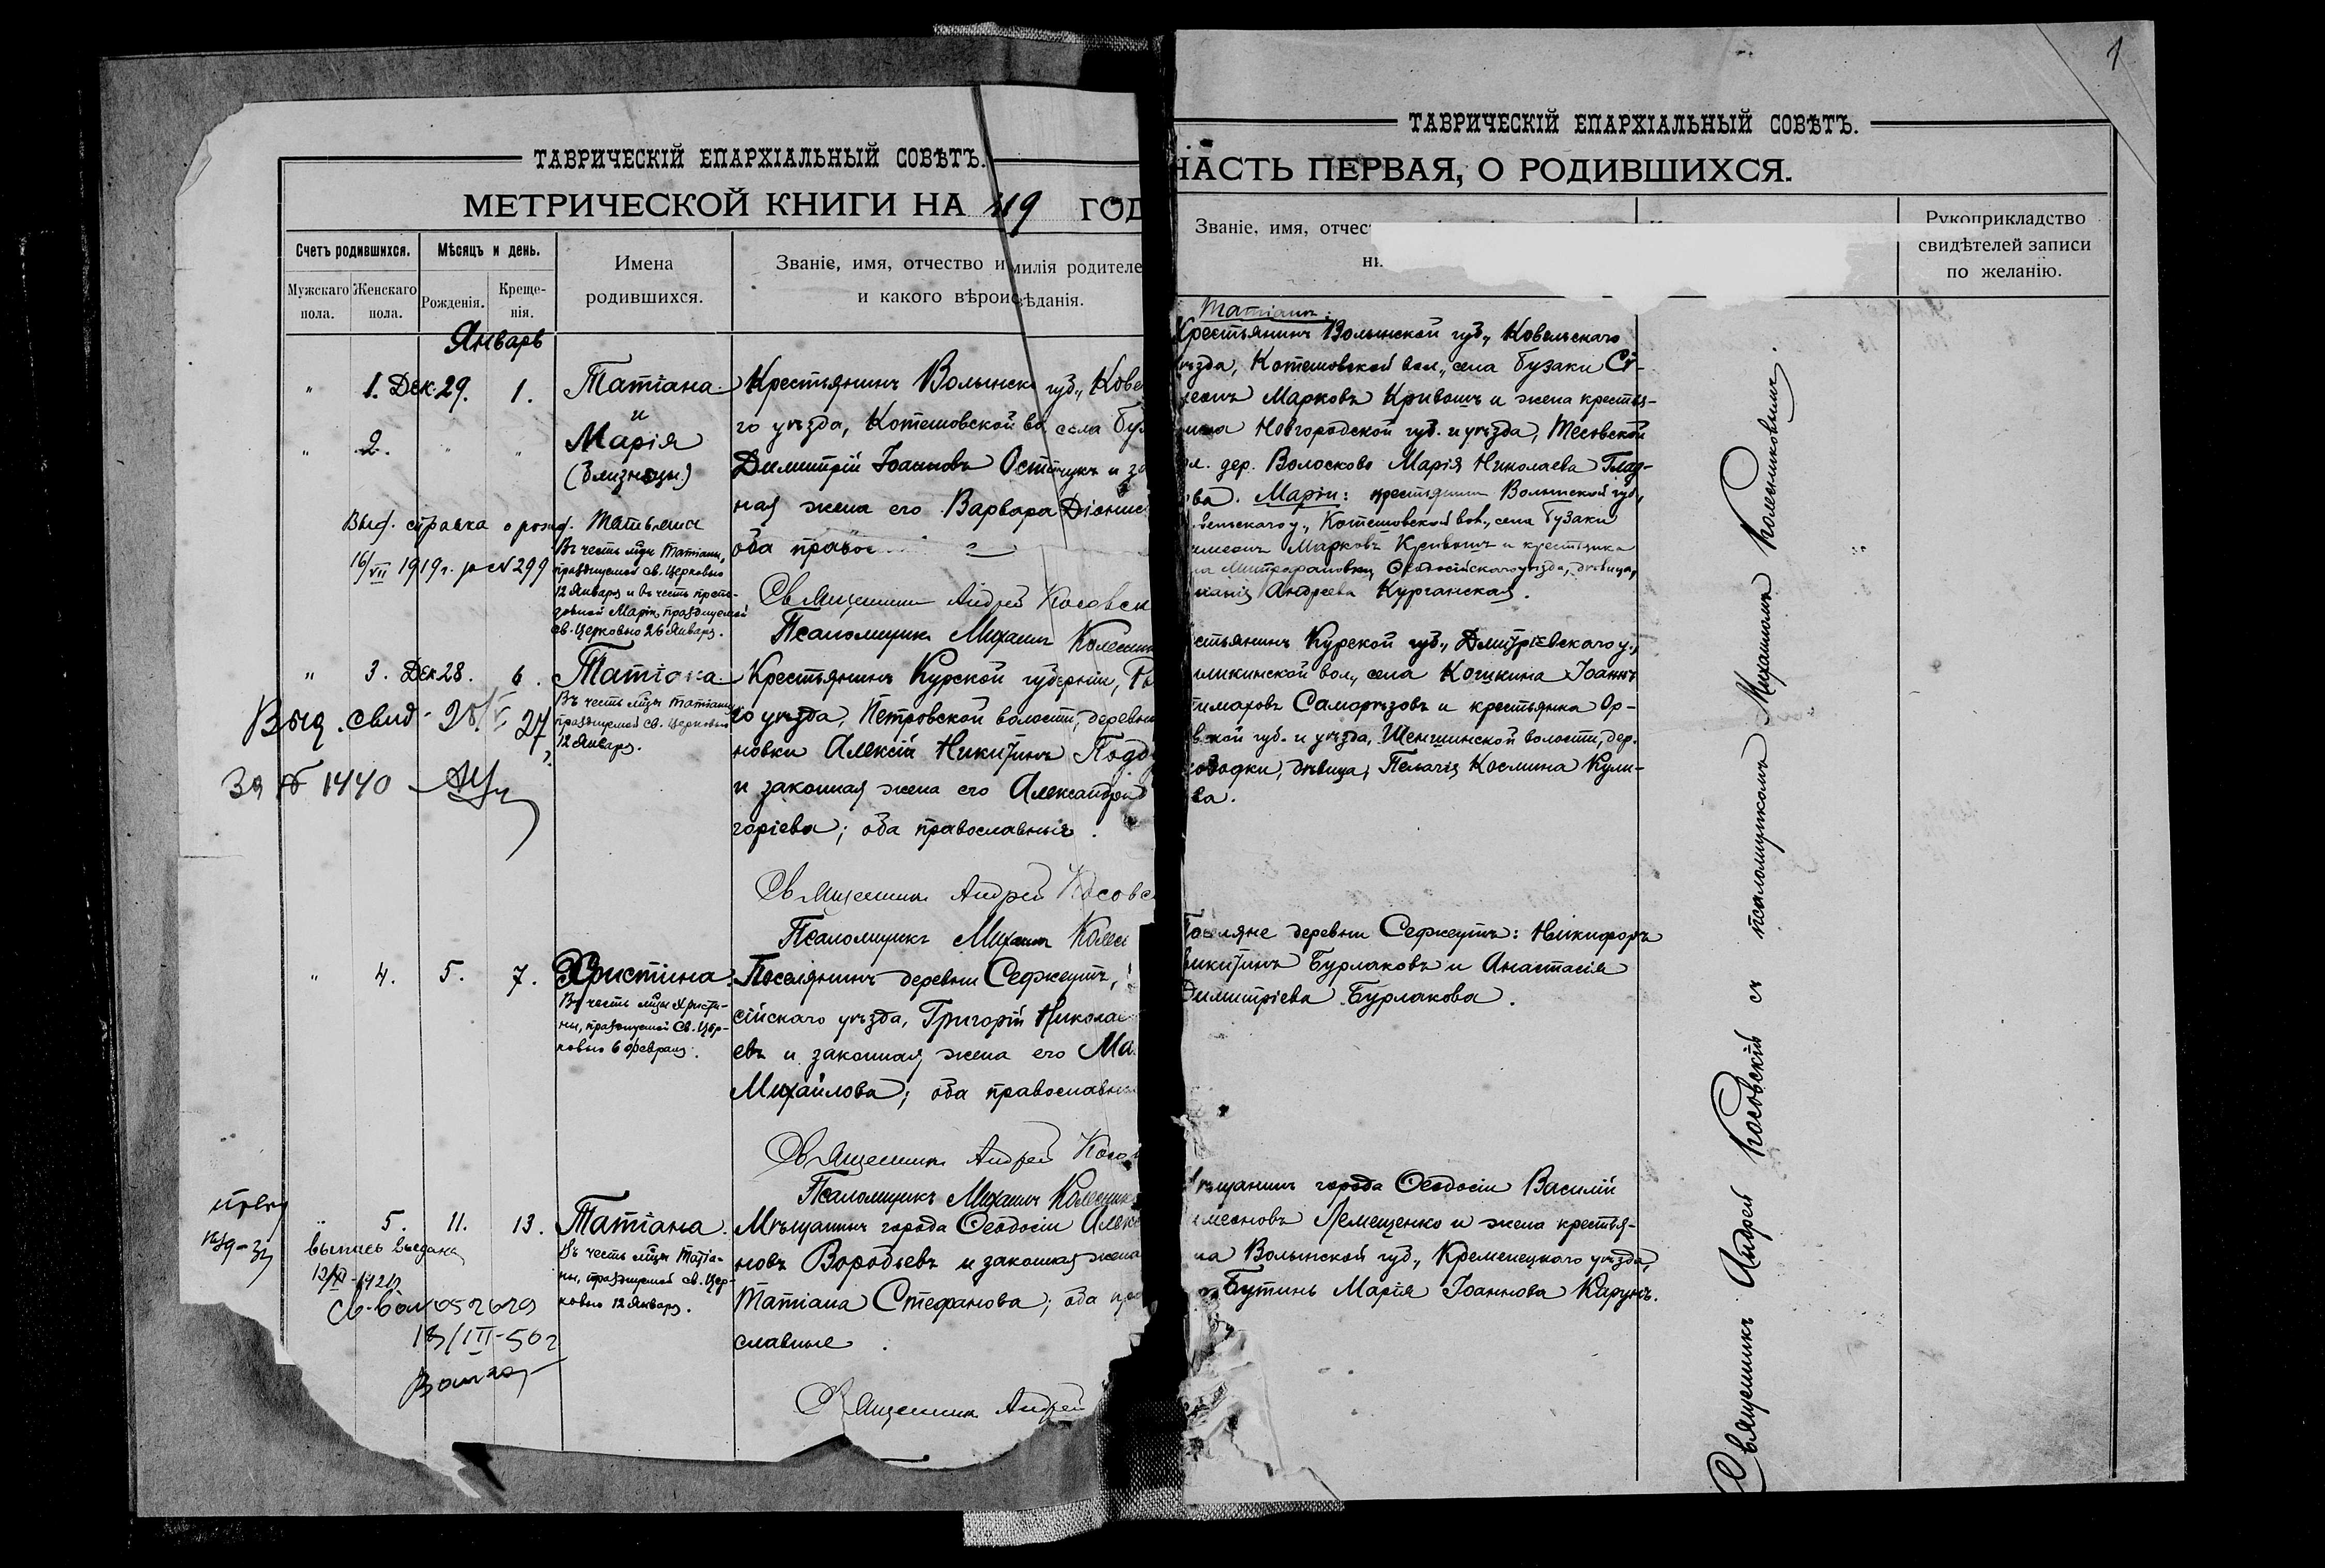 ТАВРИЧЕСКІЙ ЕПАРХІАЛЬНЫЙ СОВѢТЪ.
МЕТРИЧЕСКОЙ КНИГИ НА 119 ГОД
Счетъ родившихся.
Мѣсяцъ и день.
Мужскаго пола.
Женскаго пола.
Рожденія.
Креще-
нія.
Имена
родившихся.
Званіе, имя, отчество и милія родителе
и какого вѣроис вѣданія.
Январь
" 1. Дек. 29. 1. Татіана
и
" 2. " " Марія
(близнецы)
Крестьянинъ Волынск губ., Кове
го уѣзда, Котешовской во села Буз
Димитрій Іоанновъ Ост чукъ и за
ная жена его Варвара Діонис
оба правос
Выд. справка о рожд. Татьяны
16/VII 1919 г. за № 299
Въ честь мцы Татіаны,
празднуемой св. Церковью
12 Января и въ честь препо-
добной Маріи, празднуемой
св. Церковью 26 Января.
Священникъ Андрей Косовск
Псаломщикъ Михаилъ Колесник
" 3. Дек. 28. 6. Татіана
Въ честь мцы Татіаны,
празднуемой св. Церковью
12 Января.
Крестьянинъ Курской губерніи,
го уѣзда, Петровской волости, деревни
новки Алексій Никитинъ Подд
и законная жена его Александра
горіева; оба православные.
Выд. свид.
27
За № 1440
Священникъ Андрей Косовс
Псаломщикъ Михаилъ Колес
" 4. 5. 7. Христина.
Въ честь мцы Христи-
ны, празднуемой св. Цер-
ковью 6 Февраля.
Поселянинъ деревни Сефкеутъ,
сійскаго уѣзда, Григорій Никола
евъ и законная жена его Ма
Михайлова; оба православны
Священникъ Андрей Косо
Псаломщикъ Михаилъ Колесник
" 5. 11. 13. Татіана.
Въ честь мцы Татіа-
ны, празднуемой св. Цер-
ковью 12 Января.
Мѣщанинъ города Ѳеодосіи Алекс
новъ Воробьевъ и законная жена
Татіана Стефанова; оба пра
славные.
выпись выдана
18/III-50 г
Священникъ Андрей
1
ТАВРИЧЕСКІЙ ЕПАРХІАЛЬНЫЙ СОВѢТЪ.
ЧАСТЬ ПЕРВАЯ, О РОДИВШИХСЯ.
Званіе, имя, отчес
Рукоприкладство
свидѣтелей записи
по желанію.
Татіаны:
Крестьянинъ Волынской губ., Ковельскаго
ѣзда, Котешовской вол., села Бузаки Си-
меонъ Марковъ Кривошъ и жена крестья-
нина Новгородской губ. и уѣзда, Тесовской
ол. дер. Волосково Марія Николаева Глад-
ва. Маріи: крестьянинъ Волынской губ.,
вельскаго у., Котешовской вол., села Бузаки
имеонъ Марковъ Кривошъ и крестьянка
на Митрофановки Ѳеодосійскаго уѣзда, дѣвица,
Андреева Курганская.
стьянинъ Курской губ., Дмитріевскаго у.,
иликинской вол., села Кошкина Іоаннъ
тимаровъ Саморѣзовъ и крестьянка Ор-
вской губ. и уѣзда, Шеншинской волости, дер.
ободки, дѣвица, Пелагія Космина Кули-
ва.
Поселяне деревни Сефкеутъ: Никифоръ
икитинъ Бурлаковъ и Анастасія
Димитріева Бурлакова.
Мѣщанинъ города Ѳеодосіи Василій
имеоновъ Лемещенко и жена крестья-
на Волынской губ., Кременецкаго уѣзда,
Бутинь Марія Іоаннова Карунъ.
Священникъ Андрей Косовскій съ псаломщикомъ Михаиломъ Колесниковымъ.